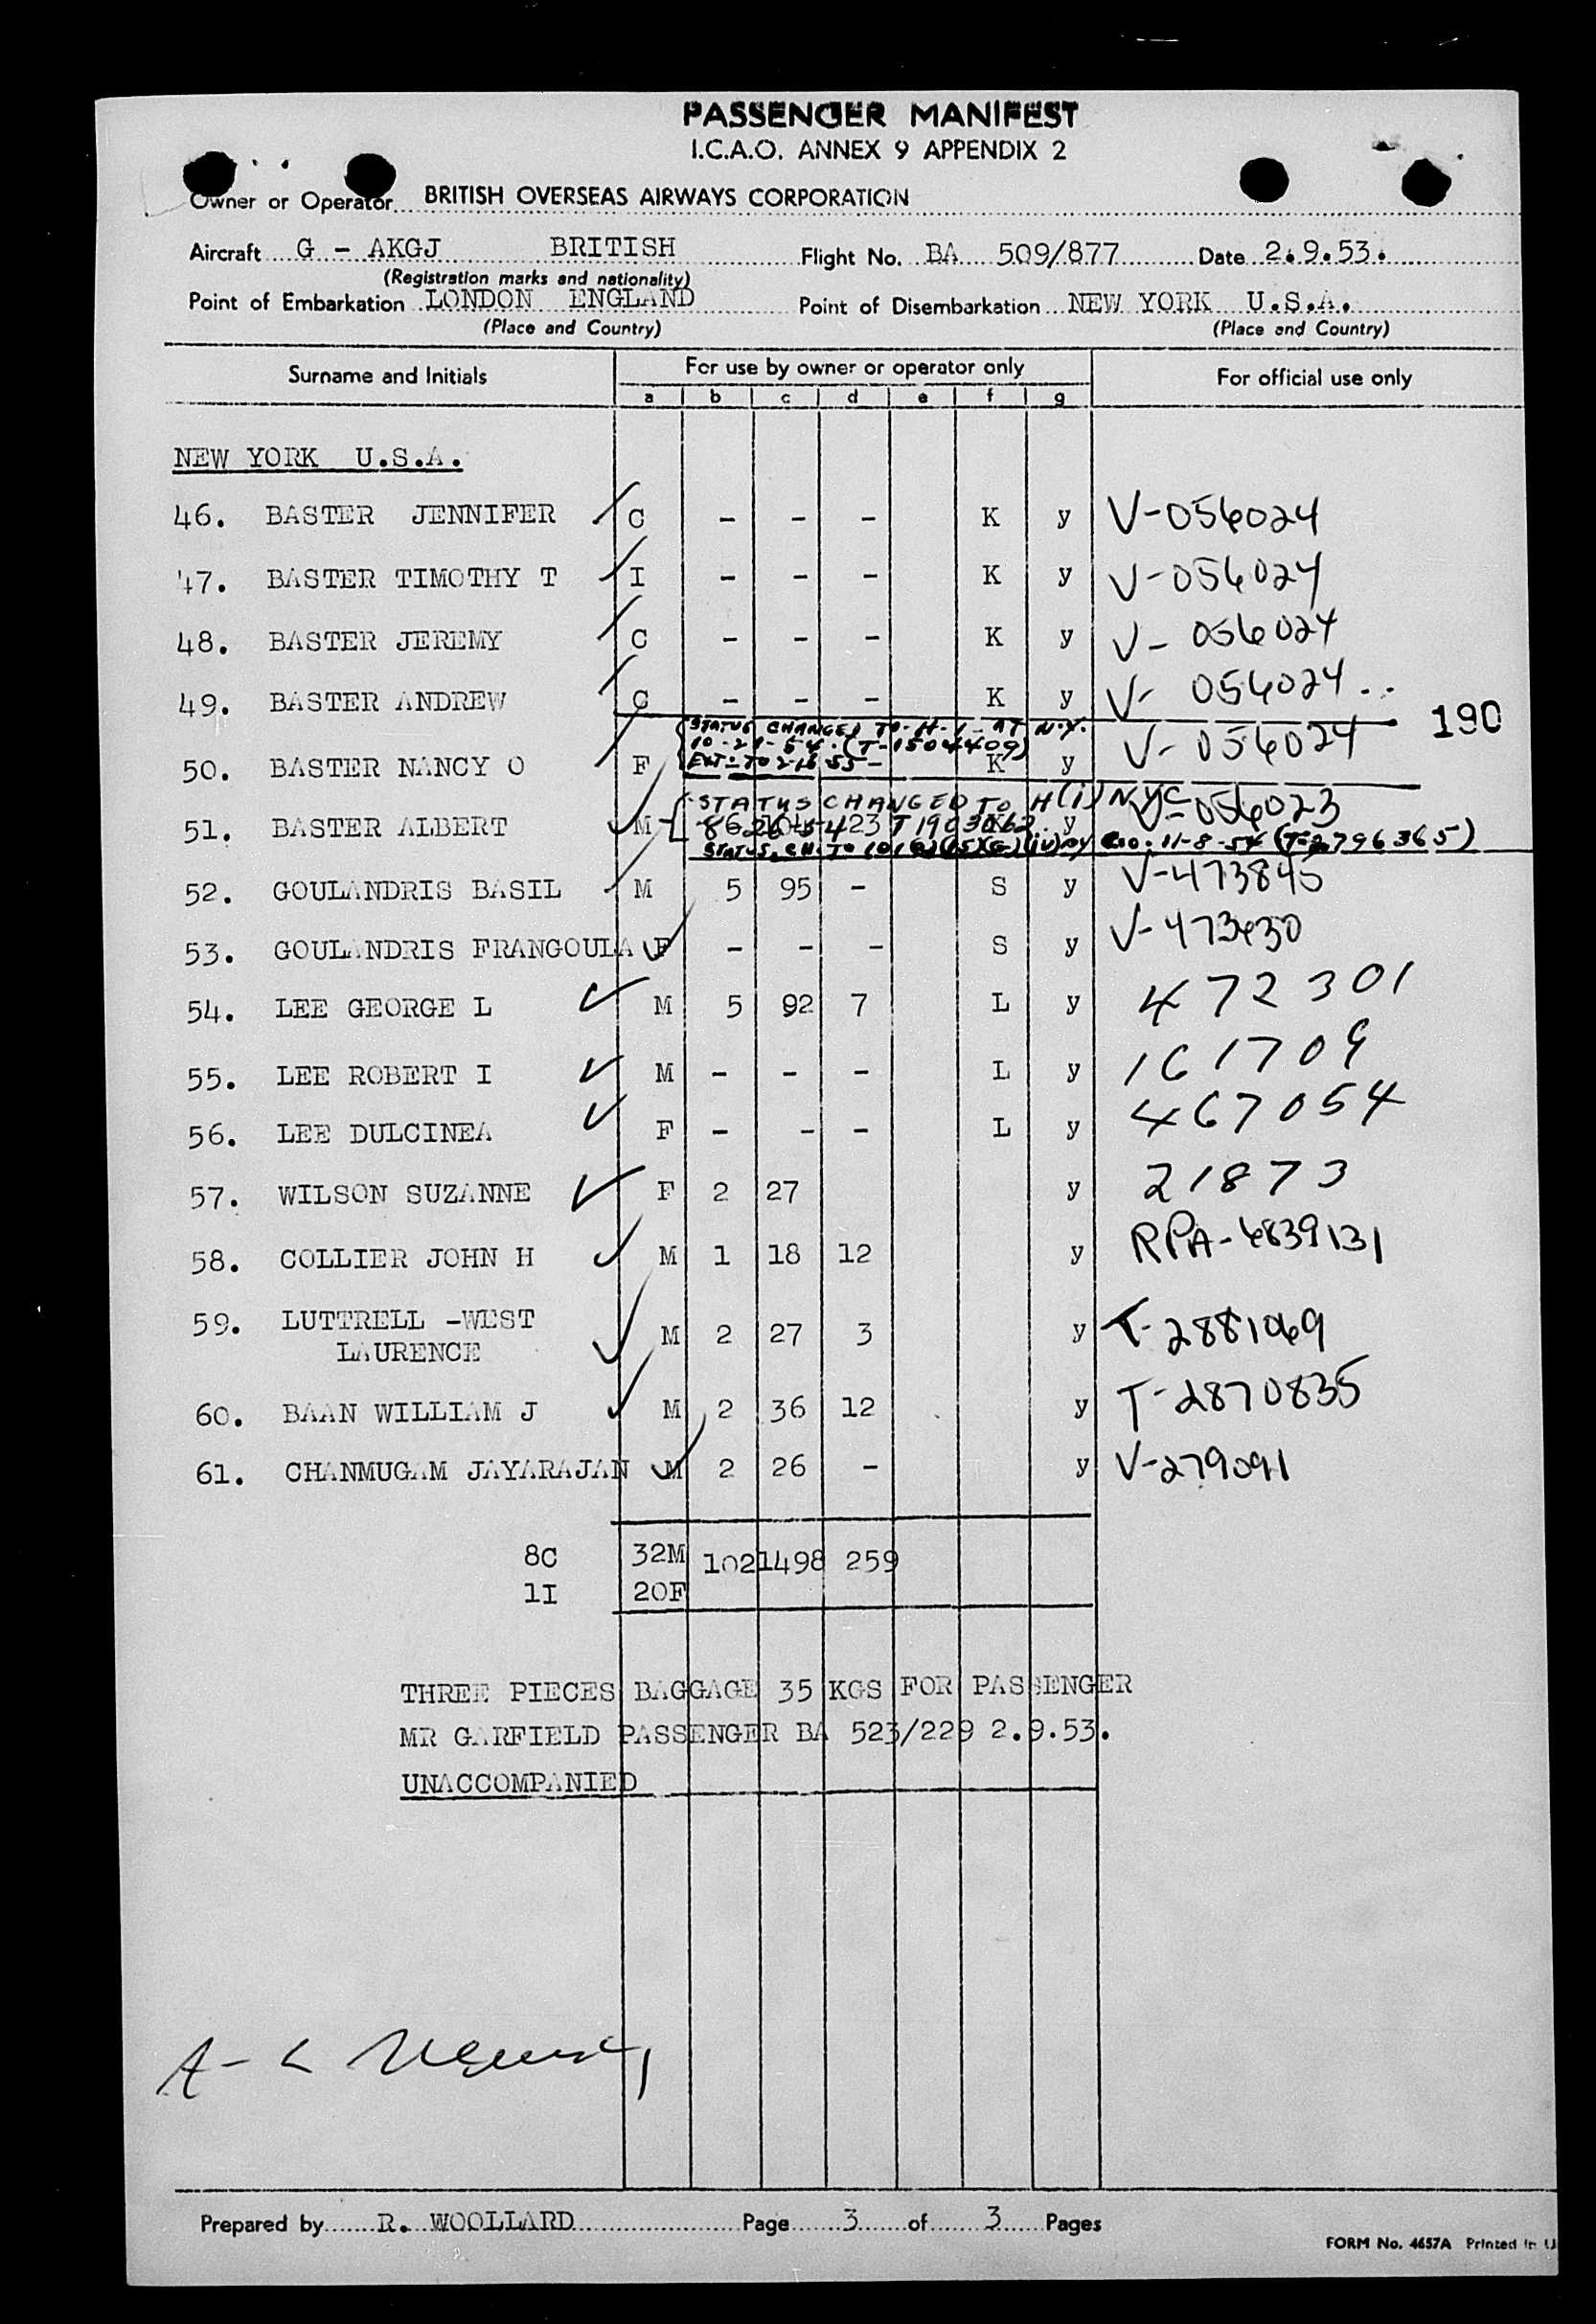 PASSENGER MANIFEST
I.C.A.O. ANNEX 9 APPENDIX 2
Owner or Operator BRITISH OVERSEAS AIRWAYS CORPORATION
Aircraft G - AKGJ BRITISH Flight No. BA 509/877 Date 2.9.53.
(Registration marks and nationality)
Point of Embarkation LONDON ENGLAND Point of Disembarkation NEW YORK U.S.A.
(Place and Country) (Place and Country)
Surname and Initials For use by owner or operator only For official use only
a b c d e f g
NEW YORK U.S.A.
46. BASTER JENNIFER C - - - K y V-056024
47. BASTER TIMOTHY T I - - - K y V-056024
48. BASTER JEREMY C - - - K y V-056024
49. BASTER ANDREW C - - - K y V-056024
190
STATUS CHANGED TO H-1 AT N.Y.
10-21-54. (T-1504409)
50. BASTER NANCY O F EXT- TO 2-16-55- K y V-056024
STATUS CHANGED TO H(i) NYC
51. BASTER ALBERT M T1903062 y V-056023
11-8-54
52. GOULANDRIS BASIL M 5 95 - S y V-473845
53. GOULANDRIS FRANGOULA F - - - S y V-473430
54. LEE GEORGE L M 5 92 7 L y 472301
55. LEE ROBERT I M - - - L y 161709
56. LEE DULCINEA F - - - L y 467054
57. WILSON SUZANNE F 2 27 y 21873
58. COLLIER JOHN H M 1 18 12 y RPA-4839131
59. LUTTRELL -WEST
LAURENCE M 2 27 3 y T-2881069
60. BAAN WILLIAM J M 2 36 12 y T-2870835
61. CHANMUGAM JAYARAJAN M 2 26 - y V-279091
8C 32M 102 1498 259
1I 20F
THREE PIECES BAGGAGE 35 KGS FOR PASSENGER
MR GARFIELD PASSENGER BA 523/229 2.9.53.
UNACCOMPANIED
Prepared by R. WOOLLARD Page 3 of 3 Pages
FORM No. 4657A Printed in